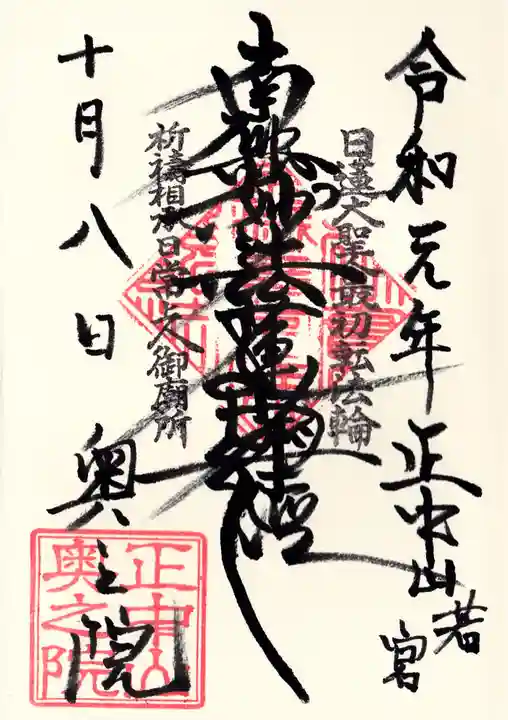 令和元年 正中山
若宮
日蓮大聖人最初転法輪
南無妙法蓮華経
祈禱相承日常上人御廟所
十月八日 奥之院
正中山
奥之院